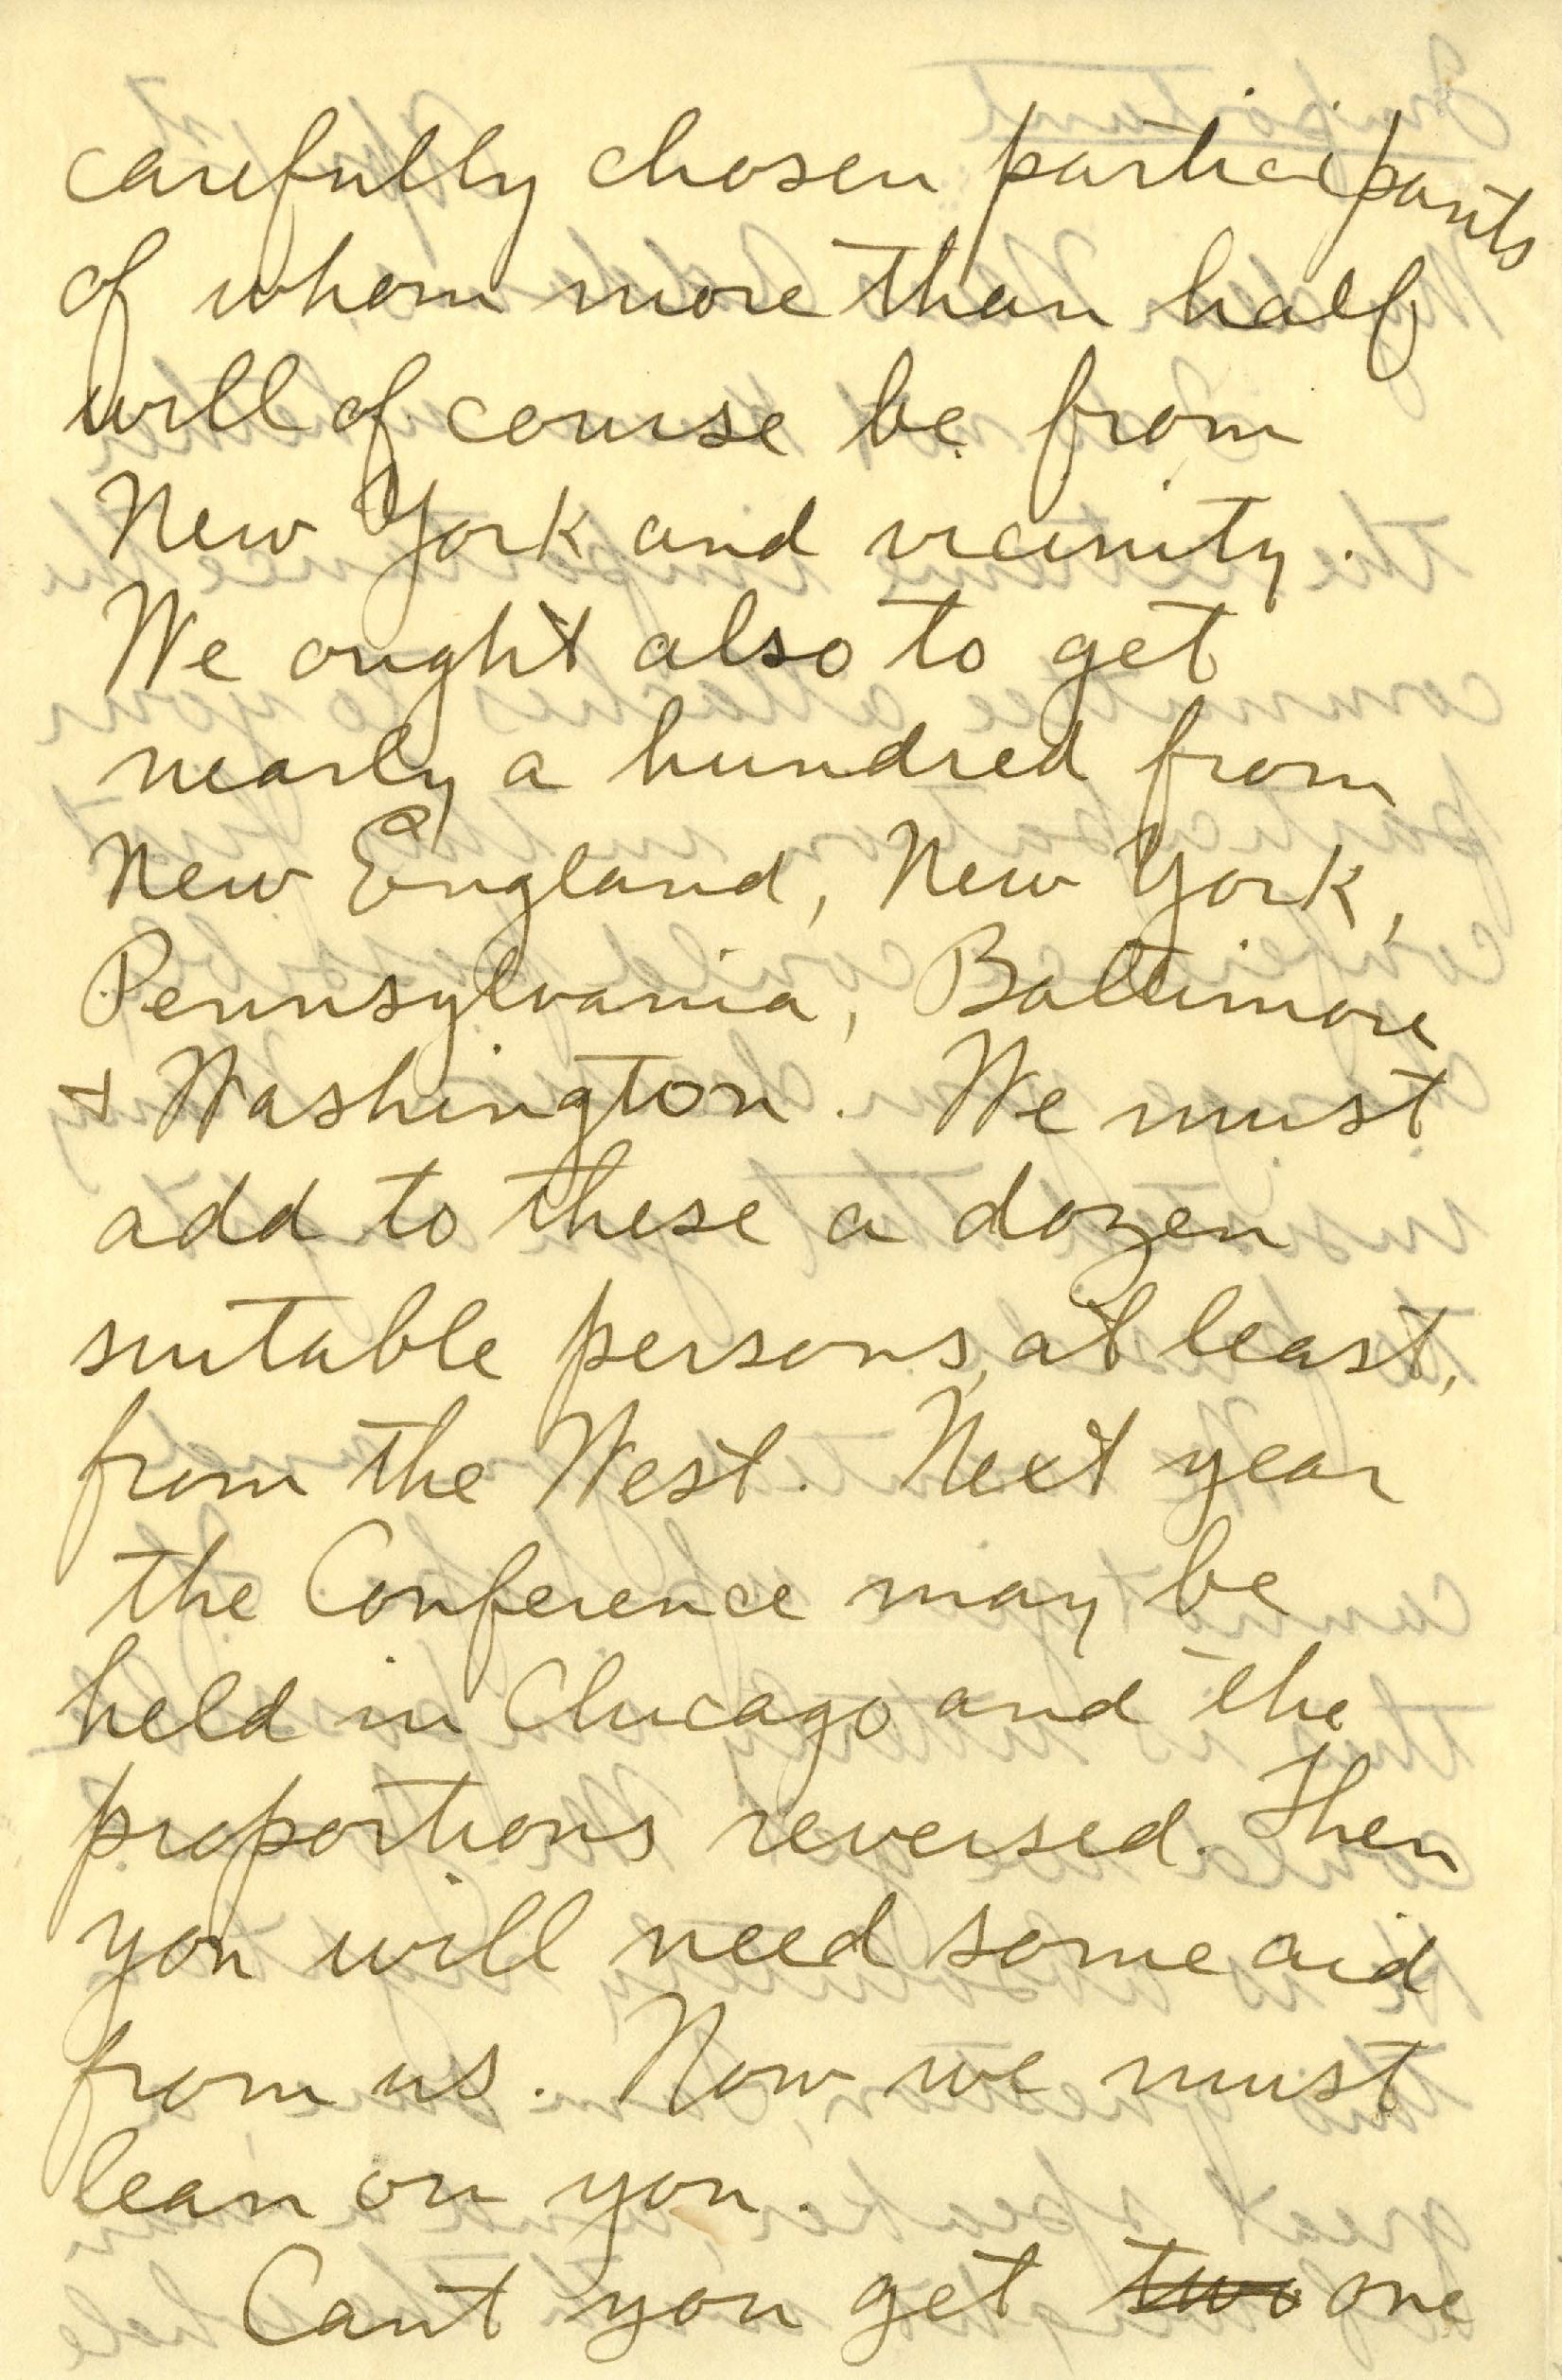 carefully chosen participants
of whom more than half
will of course be from
New York and vicinity.
We ought also to get
nearly a hundred from
New England, New York,
Pennsylvania, Baltimore
+ Washington. We must
add to these a dozen
suitable persons, at least,
from the West. Next year
the Conference may be
held in Chicago and the
proportions reversed. Then
you will need some aid
from us. Now we must
lean on you.
Cant you get two one